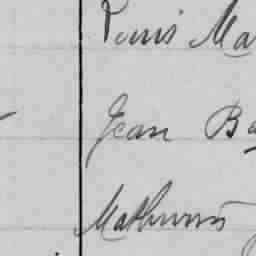 Louis Ma
Jean Ba
Mathurin